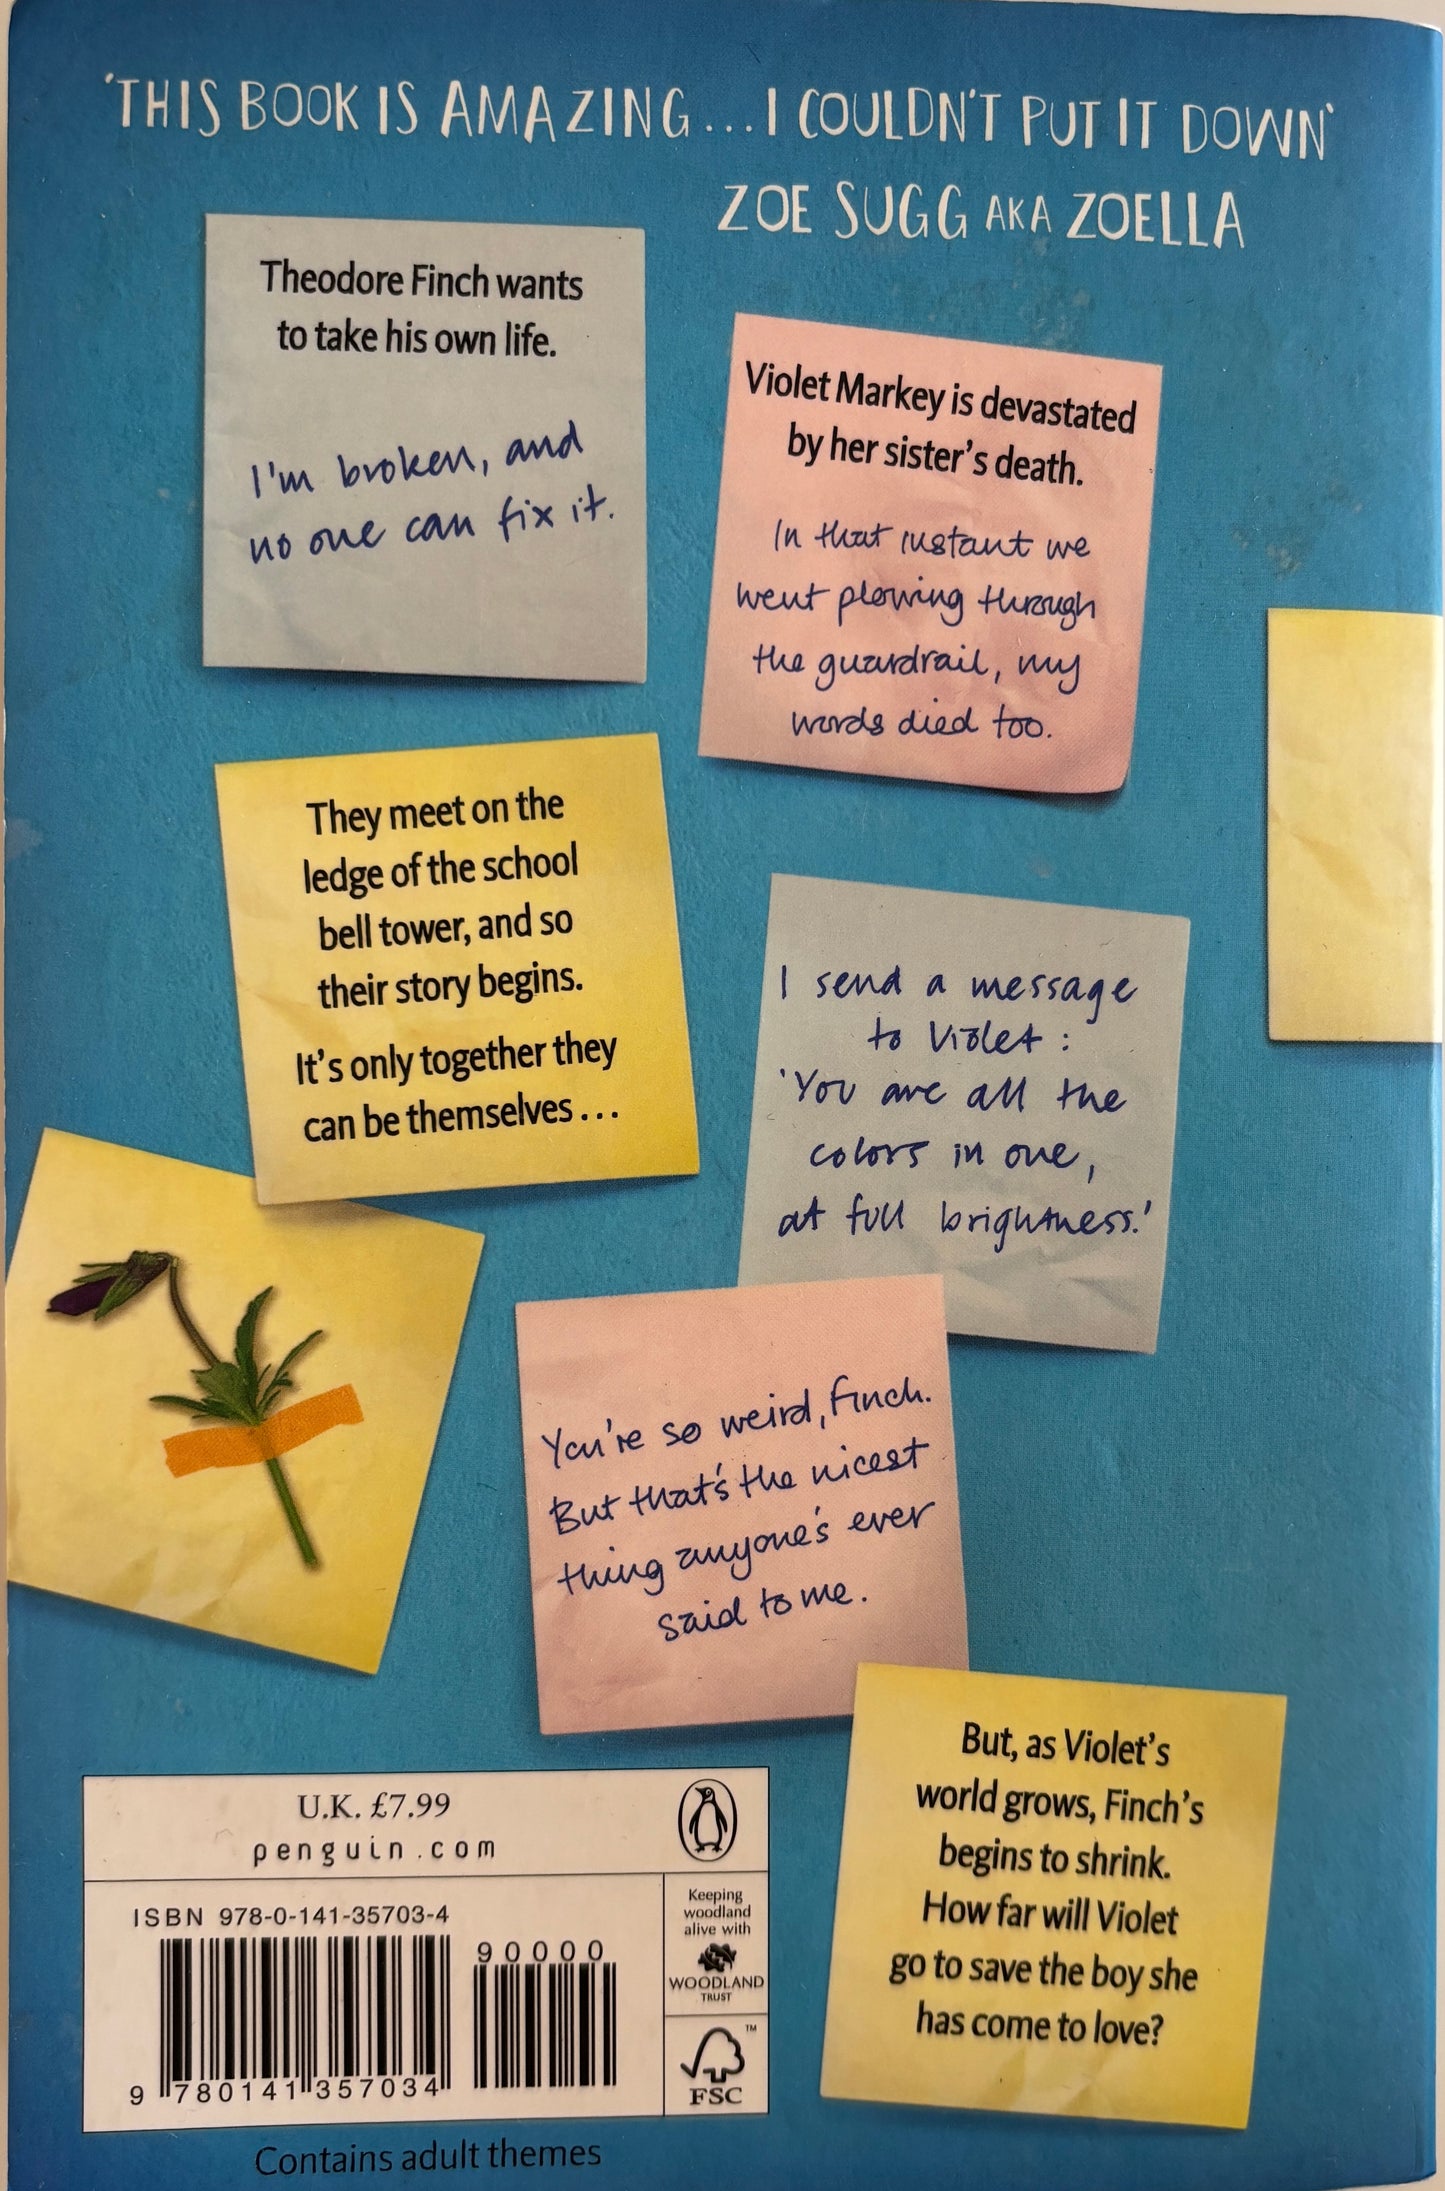 'THIS BOOK IS AMAZING...I COULDN'T PUT IT DOWN'
ZOE SUGG AKA ZOELLA
Theodore Finch wants
to take his own life.
I'm broken, and
no one can fix it.
Violet Markey is devastated
by her sister's death.
In that instant we
went plowing through
the guardrail, my
words died too.
They meet on the
ledge of the school
bell tower, and so
their story begins.
It's only together they
can be themselves...
I send a message
to Violet:
'You are all the
colors in one,
at full brightness.'
You're so weird, Finch.
But that's the nicest
thing anyone's ever
said to me.
But, as Violet's
world grows, Finch's
begins to shrink.
How far will Violet
go to save the boy she
has come to love?
U.K. £7.99
penguin.com
ISBN 978-0-141-35703-4
90000
9 780141 357034
Keeping
woodland
alive with
WOODLAND
TRUST
™
FSC
Contains adult themes